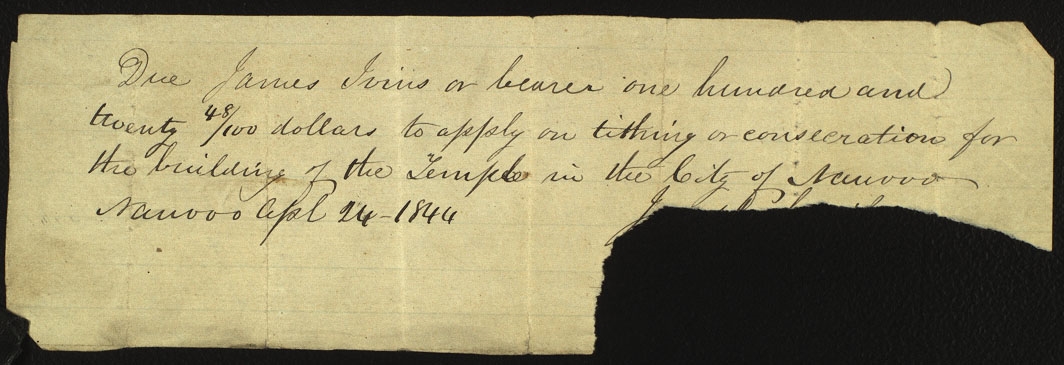 Due James Ivins or bearer one hundred and
twenty 48/100 dollars to apply on tithing or consecration for
the building of the Temple in the City of Nauvoo
Nauvoo Apl 24-1844